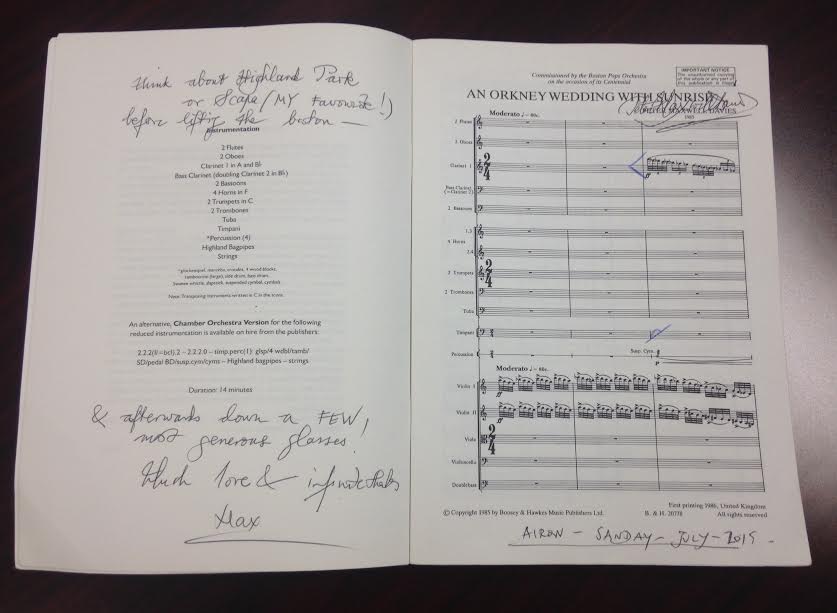 think about Highland Park
or Scapa/MY Favourite!)
before lifting the baton —
Instrumentation
2 Flutes
2 Oboes
Clarinet 1 in A and B♭
Bass Clarinet (doubling Clarinet 2 in B♭)
2 Bassoons
4 Horns in F
2 Trumpets in C
2 Trombones
Tuba
Timpani
*Percussion (4)
Highland Bagpipes
Strings
* glockenspiel, marimba, crotales, 4 wood blocks,
tambourine (large), side drum, bass drum,
Swanee whistle, slapstick, suspended cymbal, cymbals
Note: Transposing instruments written in C in the score.
An alternative, Chamber Orchestra Version for the following
reduced instrumentation is available on hire from the publishers:
2.2.2(II=bcl).2 – 2.2.2.0 – timp.perc(1): glsp/4 wdbl/tamb/
SD/pedal BD/susp.cym/cyms – Highland bagpipes – strings
Duration: 14 minutes
& afterwards down a FEW,
most generous glasses!
Much love & infinite thanks
Max
Commissioned by the Boston Pops Orchestra
on the occasion of its Centennial
IMPORTANT NOTICE
The unauthorised copying
of the whole or any part of
this publication is illegal
AN ORKNEY WEDDING WITH SUNRISE
PETER MAXWELL DAVIES
1985
Moderato ♩ = 80c.
2 Flutes
2 Oboes
Clarinet 1
2/4
ff
Bass Clarinet
(=Clarinet 2)
2 Bassoons
1,3
4 Horns
2,4
2 Trumpets
2/4
2 Trombones
Tuba
Timpani
Susp. Cym.
Percussion
p
Moderato ♩ = 80c.
Violin I
ff
Violin II
ff
Viola
2/4
Violoncello
Doublebass
© Copyright 1985 by Boosey & Hawkes Music Publishers Ltd.
B. & H. 20778
First printing 1986, United Kingdom
All rights reserved
AIRON – SANDAY – JULY – 2015 –